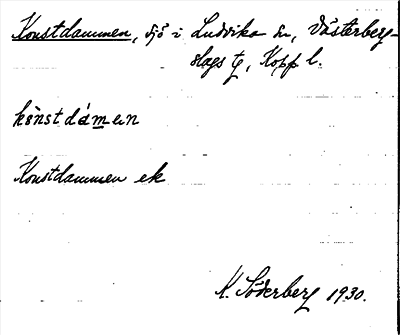 Konstdammen, sjö i Ludvika sn, Västerberg-
slags tg, Kopp l.
kònstdámen
Konstdammen ek
K. Söderberg 1930.